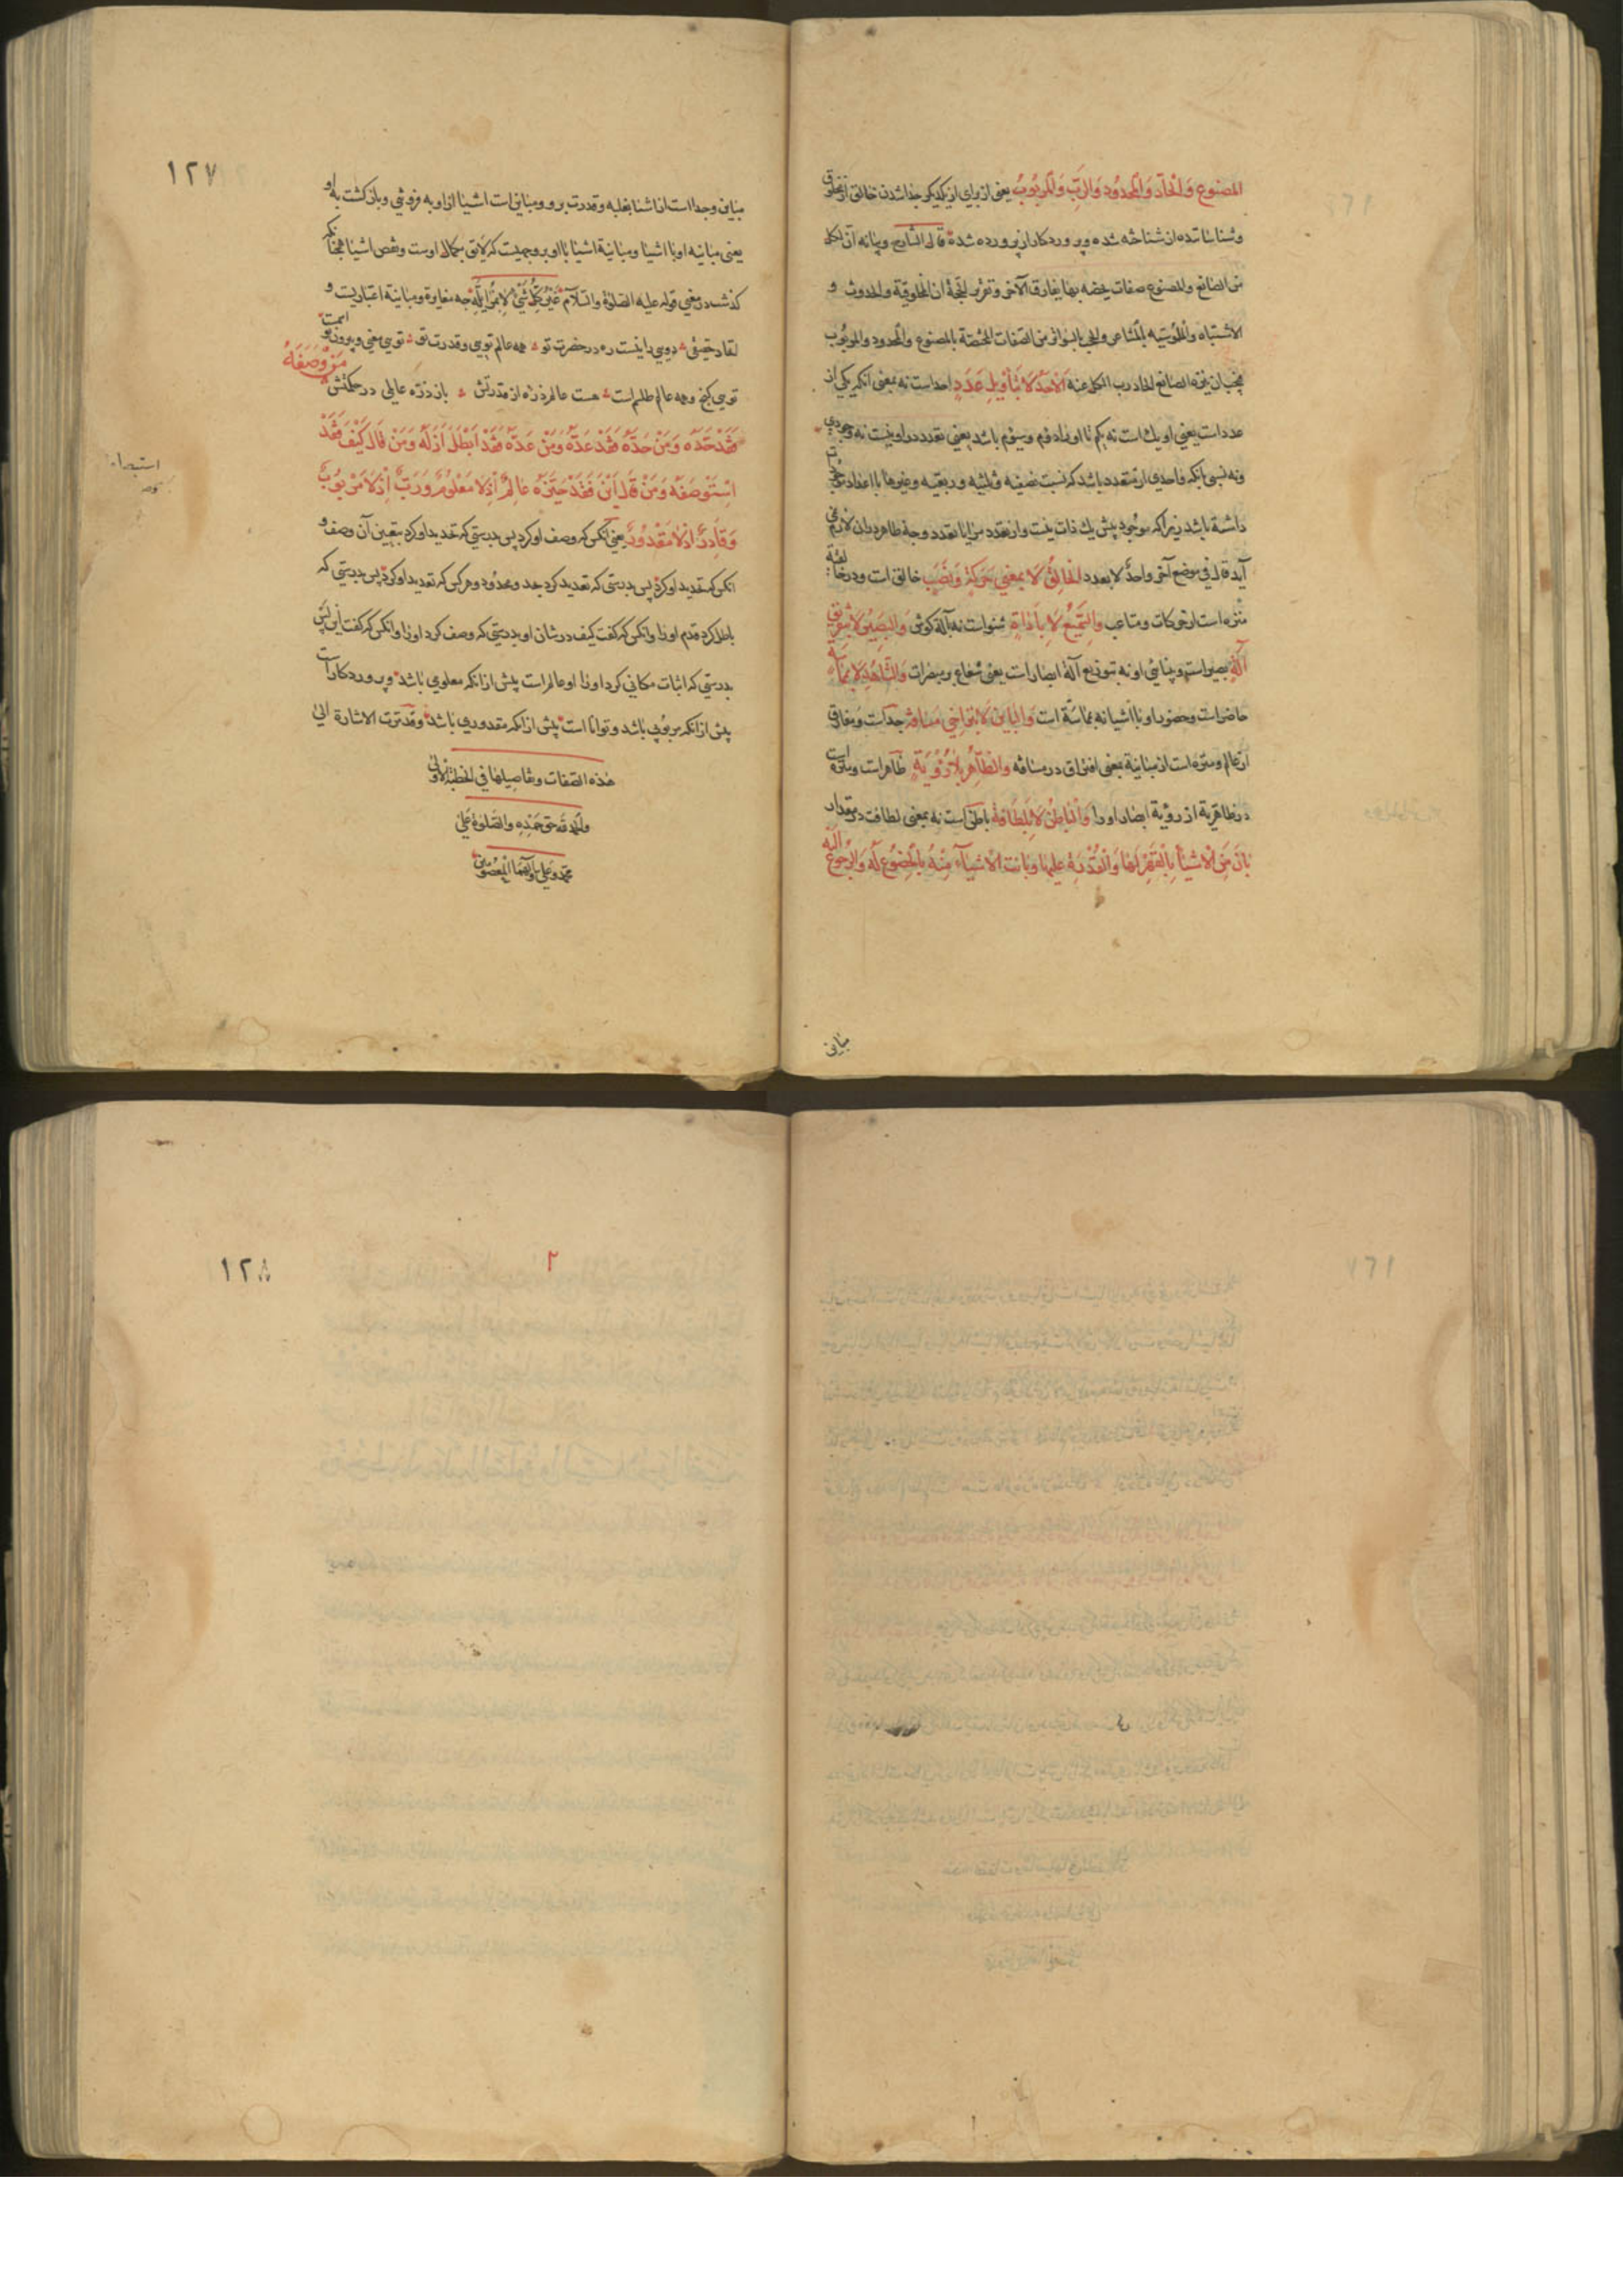 المصنوع وَالْحَادّ وَالْمَحْدُودِ وَالرَّبِّ وَالْمَرْبُوبِ یعنی از برای از یکدیکر جدا شدن خالق از مخلوق
و شناساننده از شناخته شده و پروردکار از پرورده شده قال الشارح و بیانه ان لکل
من الصانع والمصنوع صفات یخصه بها یفارق الآخر
الاشتباه من الصفات المختصة بالمصنوع والمحدود والمربوب
اَلْاَحَدُ لَا بِتَأْوِیلِ عَدَدٍ احداست نه بمعنی آنکه یکی از
عدد است یعنی او یك است نه یکم تا او را دوّم و سیّوم باشد یعنی تعدد در او نیست نه وجودي
ونه نسبی بآنکه واحدي از متعدد باشد که نسبت نصفیه و ثلثیه و ربعیه و غیرها با اعداد
داشته باشد زیرا که موجود پیش یك ذات نیست و از تعدد مرایا تعدد وجه ظاهر در ان لازم نمی
آید قال فی موضع آخر واحدٌ لا بعدد اَلْخَالِقُ لَا بِمَعْنَی حَرَکَةٍ وَنَصَبٍ خالق است و در
منزه است از حرکات و متاعب وَالسَّمِیعُ لَا بِاَدَاةٍ شنواست نه بآلة کوش وَالْبَصِیرُ لَا بِتَفْرِیقِ
آلَةٍ بصیراست و بینائی او نه بتوزیع آلة ابصار است یعنی شعاع و مبصرات وَالشَّاهِدُ لَا بِمُمَاسَّةٍ
حاضر است و حضور او با اشیا نه بمماسّة است وَالْبَایِنُ لَا بِتَرَاخِي مَسَافَةٍ جداست و مفارق
از عالم و منزه است از مباینة بمعنی افتراق در مسافه وَالظَّاهِرُ لَا بِرُؤْیَةٍ ظاهر است و منزه است
در ظاهریة از رؤیة ابصار او را وَالْبَاطِنُ لَا بِلَطَافَةٍ باطن است نه بمعنی لطافت در مقدار
بَانَ مِنَ الْاَشْیَآءِ بِالْقَهْرِ لَهَا وَالْقُدْرَةِ عَلَیْهَا وَبَانَتِ الْاَشْیَآءُ مِنْهُ بِالْخُضُوعِ لَهُ وَالرُّجُوعِ اِلَیْهِ
مباین
١٢٧
مباین و جداست از اشیا بغلبه و قدرت بر و مباین است اشیا از او به فروتنی و بازکشت به او
یعنی مباینه او با اشیا و مباینة اشیا با او بر وجهیست که لایق بکمال اوست و نقص اشیا همچنانکه
کذشت در معنی قوله علیه الصلوة والسلام غَیْرُ کُلِّ شَیْءٍ لَا بِمُزَایَلَةٍ چه مغایرة و مباینة اعتباریست و
دویي را نیست ره در حضرت تو همه عالم تویي و قدرت تو
تویي کنج و همه عالم طلسم است هست عالم ذرّه از قدرتش باز ذرّه عالمی در حکمتش مَنْ وَصَفَهُ
فَقَدْ حَدَّهُ وَمَنْ حَدَّهُ فَقَدْ عَدَّهُ وَمَنْ عَدَّهُ فَقَدْ اَبْطَلَ اَزَلَهُ وَمَنْ قَالَ کَیْفَ فَقَدِ
اسْتَوْصَفَهُ وَمَنْ قَالَ اَیْنَ فَقَدْ حَیَّزَهُ عَالِمٌ اِذْ لَا مَعْلُومٌ وَرَبٌّ اِذْ لَا مَرْبُوبٌ
وَقَادِرٌ اِذْ لَا مَقْدُورٌ یعنی آنکس که وصف او کرد پس بدرستی که تحدید او کرد بتعیین آن وصف و
آنکس که تحدید او کرد پس بدرستی که تعدید کرد بحد و محدود و هرکس که تعدید او کرد پس بدرستی که
باطل کرد قدم او را و آنکس که کفت کیف در شان او بدرستی که وصف کرد او را و آنکس که کفت این پس
بدرستی که اثبات مکانی کرد او را او عالم است پیش از آنکه معلومی باشد و پروردکار است
پیش از آنکه مربوبی باشد و توانا است پیش از آنکه مقدوري باشد و قد مرّت الاشارة الی
هذه الصفات وتفاصیلها في الخطبة الاولی
والحمد لله حق حمده والصلوة علی
محمد و علي وآلهما المعصومین
١٢٨
٢